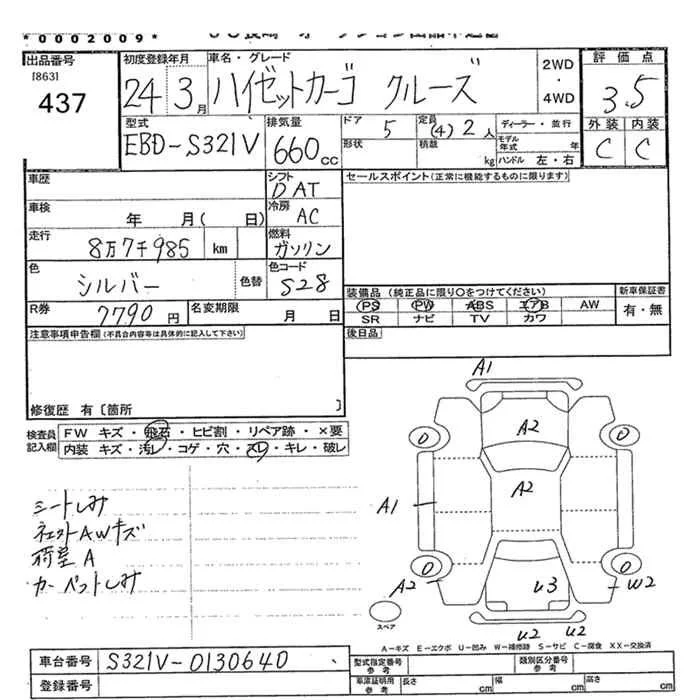 *0002009*
出品番号 [863] 437
初度登録年月 24年3月
車名・グレード ハイゼットカーゴ クルーズ
2WD ・ 4WD
評価点 3.5
外装 C 内装 C
型式 EBD-S321V
排気量 660cc
ドア 5 形状
定員 (4) 2人 積載 kg
ディーラー・並行
モデル年式 年
ハンドル 左・右
車歴
シフト DAT
セールスポイント(正常に機能するものに限ります)
車検 年 月( 日)
冷房 AC
走行 8万7千985 km
燃料 ガソリン
色 シルバー 色替
色コード S28
装備品 (純正品に限り○をつけてください) 新車保証書
PS PW ABS エアB AW 有・無
R券 7790円 名変期限 月 日
SR ナビ TV カワ
注意事項申告欄(不具合内容等は具体的に記入して下さい)
後日品
修復歴 有〔箇所 〕
検査員記入欄 FW キズ・飛石・ヒビ割・リペア跡・×要
内装 キズ・汚レ・コゲ・穴・スレ・キレ・破レ
A1
A2
A2
A1
A2
U3
W2
U2 U2
スペア
シートしみ
AWキズ
荷室A
カーペットしみ
A-キズ E-エクボ U-凹み W-補修跡 S-サビ C-腐食 XX-交換済
車台番号 S321V-0130640
型式指定番号 参考 類別区分番号 参考
登録番号
車庫証明用 参考 長さ cm 幅 cm 高さ cm